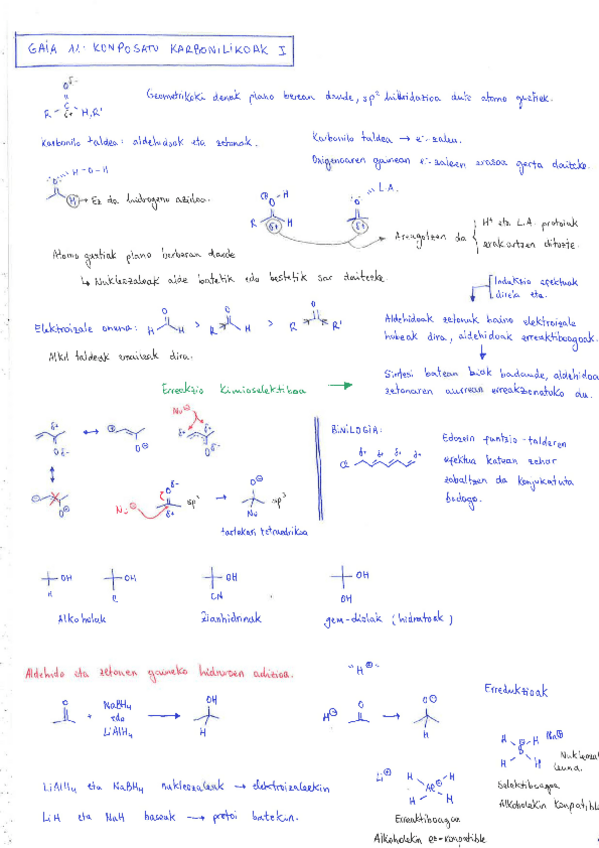 GAIA 11: KONPOSATU KARBONILIKOAK I
Geometrikoki denak plano berean daude, sp² hibridazioa dute atomo guztiek.
Karbonilo taldea: aldehidoak eta zetonak.
Karbonilo taldea → e⁻-zalea.
Oxigenoaren gainean e⁻-zaleen erasoa gerta daiteke.
H-O-H
Ez da hidrogeno azidoa.
L.A.
Areagotzen da
H⁺ eta L.A. protoiak
erakartzen dituzte.
Atomo guztiak plano berberan daude
↳ Nukleozaleak alde batetik edo bestetik sar daitezke.
Indukzio efektuak
direla eta.
Elektroizale onena: H H > R H > R R'
Aldehidoak zetonak baino elektroizale
hobeak dira, aldehidoak erreaktiboagoak.
Alkil taldeak emaileak dira.
Sintesi batean biak badaude, aldehidoa
zetonaren aurrean erreakzionatuko du.
Erreakzio kimioselektiboa →
Nu⊖
BINILOGIA:
Edozein funtzio-talderen
efektua katean zehar
zabaltzen da konjukatuta
badago.
Nu⊖ sp² → sp³
Nu
tartekari tetraedrikoa
OH OH OH OH
H C CN OH
Alkoholak
Zianhidrinak
gem-diolak (hidratoak)
Aldehido eta zetonen gaineko hidruroen adizioa.
"H⊖"
Erredukzioak
NaBH₄
edo
LiAlH₄
OH
H
H⊖ → O⊖
H
LiAlH₄ eta NaBH₄ nukleozaleak → elektroizaleekin
LiH eta NaH baseak → protoi batekin.
Li⊕
Erreaktiboagoa
Alkoholekin ez-konpatible
Na⊕
Selektiboagoa
Alkoholekin konpatible